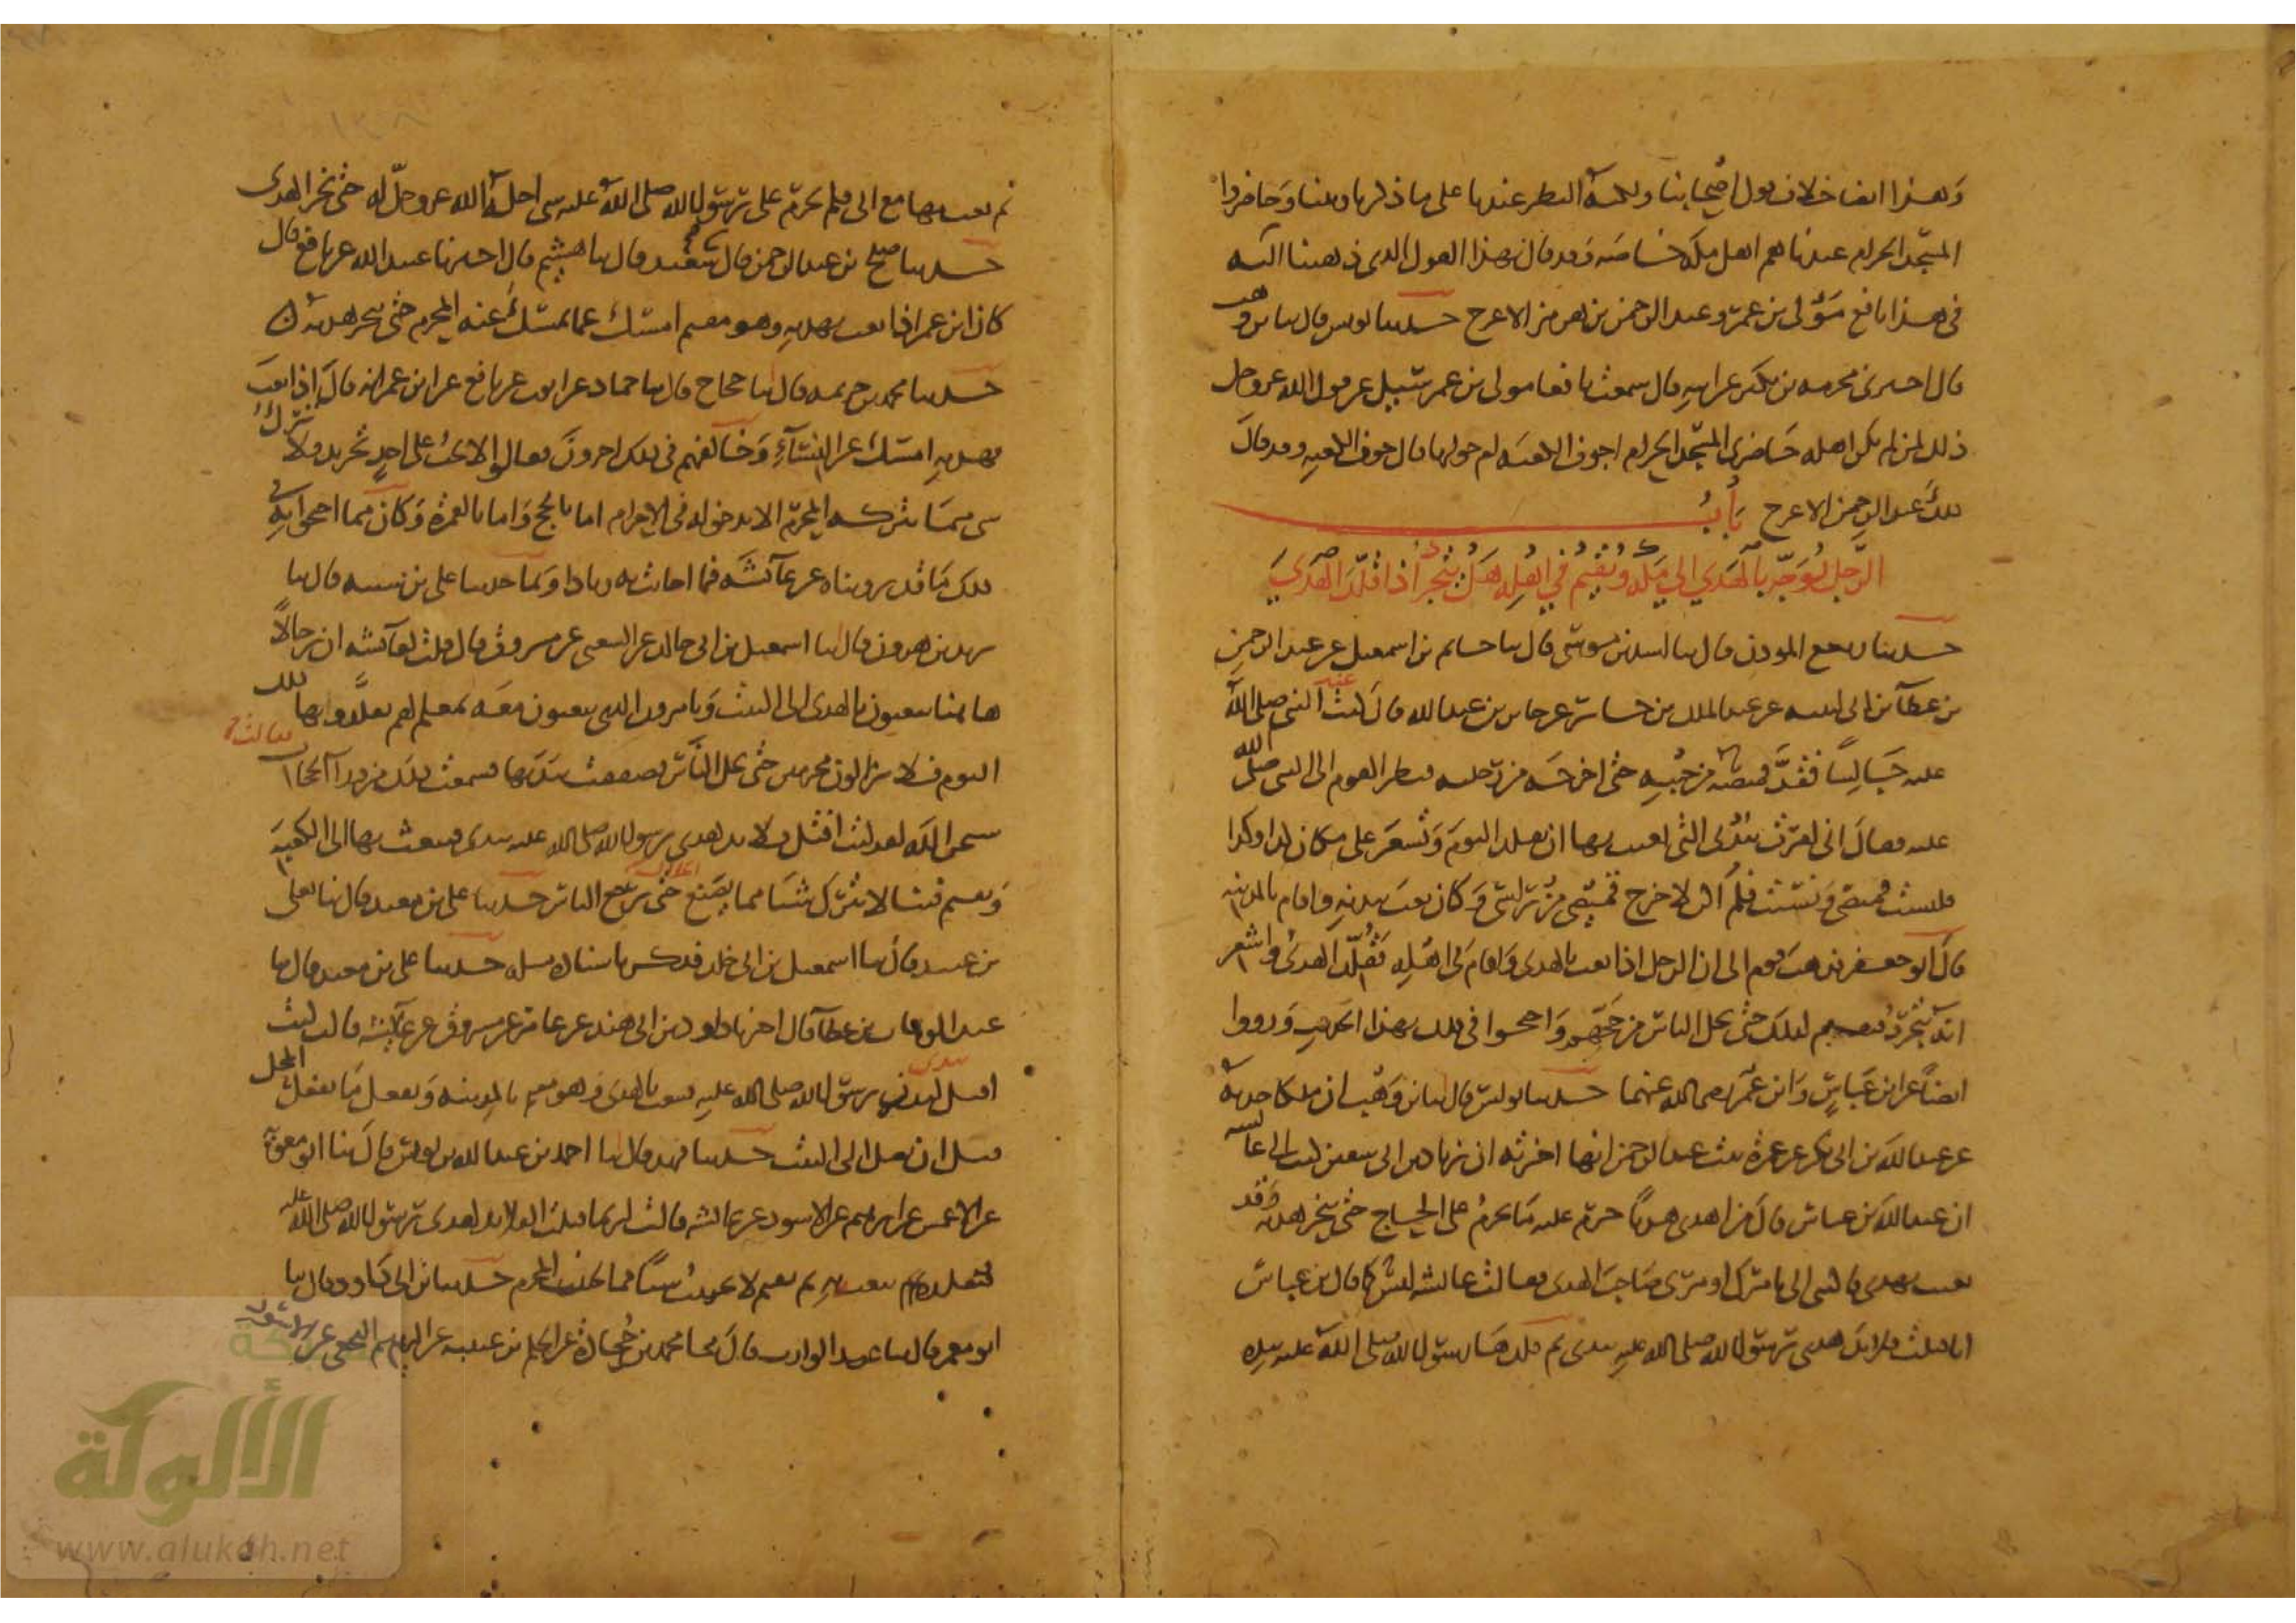 وهذا ايضا خلاف قول اصحابنا ولكنه النظر عندنا على ما ذكرنا وبينا وحاضروا
المسجد الحرام عندنا هم اهل مكة خاصة وقد قال بهذا القول الذي ذهبنا اليه
في هذا نافع مولى بن عمر وعبد الرحمن بن هرمز الاعرج حدثنا يونس قال ثنا بن وهب
قال اخبرني مخرمة بن بكير عن ابيه قال سمعت نافعا مولى بن عمر يسئل عن قول الله عز وجل
ذلك لمن لم يكن اهله حاضري المسجد الحرام اجوف الكعبة ام حولها قال جوف الكعبة وقد قال
ذلك عبد الرحمن الاعرج باب
الرجل يوجه بالهدي الى مكة ويقيم في اهله هل يتجرد اذا قلد الهدي
حدثنا ربيع المؤذن قال ثنا اسد بن موسى قال ثنا حاتم بن اسمعيل عن عبد الرحمن
بن عطاء بن ابي لبيبة عن عبد الملك بن جابر عن جابر بن عبد الله قال كنت عند النبي صلى الله
عليه جالسا فقد قميصه من جيبه حتى اخرجه من رجليه فنظر القوم الى النبي صلى الله
عليه فقال اني امرت ببدني التي بعثت بها ان تقلد اليوم وتشعر على مكان كذا وكذا
فلبست قميصي ونسيت فلم اكن لاخرج قميصي من راسي وكان بعث ببدنه واقام بالمدينة
قال ابو جعفر فذهب قوم الى ان الرجل اذا بعث بالهدي واقام في اهله فقلد الهدي واشعر
انه يتجرد فيقيم كذلك حتى يحل الناس من حجهم واحتجوا في ذلك بهذا الحديث ورووا
ايضا عن ابن عباس وابن عمر رضي الله عنهما حدثنا يونس قال ثنا بن وهب ان ملكا حدثه
عن عبد الله بن ابي بكر عن عمرة بنت عبد الرحمن انها اخبرته ان زياد بن ابي سفين كتب الى عائشة
ان عبد الله بن عباس قال من اهدى هديا حرم عليه ما يحرم على الحاج حتى ينحر هديه وقد
بعثت بهدي فاكتبي الي بامرك او مري صاحب الهدي فقالت عائشة ليس كما قال بن عباس
انا فتلت قلائد هدي رسول الله صلى الله عليه بيدي ثم قلدها رسول الله صلى الله عليه بيده
ثم بعث بها مع ابي فلم يحرم على رسول الله صلى الله عليه شي احله الله عز وجل له حتى نحر الهدي
حدثنا صلح بن عبد الرحمن قال ثنا سعيد قال ثنا هشيم قال اخبرنا عبيد الله عن نافع قال
كان ابن عمر اذا بعث بهديه وهو مقيم امسك عما يمسك عنه المحرم حتى ينحر هديه
حدثنا محمد بن خزيمة قال ثنا حجاج قال ثنا حماد عن ايوب عن نافع عن ابن عمر انه قال اذا بعث
بهديه امسك عن النساء وخالفهم في ذلك اخرون فقالوا لا يجب على احد تجريد ولا ترك
شي مما يتركه المحرم الا بدخوله في الاحرام اما بالحج واما بالعمرة وكان مما احتجوا به في
ذلك ما قد رويناه عن عائشة فما اجابت به زيادا وبما حدثنا علي بن شيبة قال ثنا
يزيد بن هرون قال ثنا اسمعيل بن ابي خالد عن الشعبي عن مسروق قال قلت لعائشة ان رجالا
هاهنا يبعثون بالهدي الى البيت ويامرون الذي يبعثون معه بمعلم لهم يقلدونها ذلك
اليوم فلا يزالون محرمين حتى يحل الناس فصفقت بيدها فسمعت ذلك من وراء الحجاب فقالت
سبحن الله لقد كنت افتل قلائد هدي رسول الله صلى الله عليه بيدي فيبعث بها الى الكعبة
ويقيم فينا لا يترك شيا مما يصنع الحلال حتى يرجع الناس حدثنا علي بن معبد قال ثنا يعلى
بن عبيد قال ثنا اسمعيل بن ابي خلد فذكر باسناده مثله حدثنا علي بن معبد قال ثنا
عبد الوهاب بن عطاء قال اخبرنا داود بن ابي هند عن عامر عن مسروق عن عائشة قالت كنت
افتل بيدي لبدن رسول الله صلى الله عليه فيبعث بالهدي وهو مقيم بالمدينة ويفعل ما يفعل المحل
قبل ان يصل الى البيت حدثنا فهد قال ثنا احمد بن عبد الله بن يونس قال ثنا ابو معوية
عن الاعمش عن ابرهيم عن الاسود عن عائشة قالت لربما فتلت القلائد لهدي رسول الله صلى الله عليه
فيقلده ثم يبعث به ثم يقيم لا يجتنب شيا مما يجتنب المحرم حدثنا بن ابي داود قال ثنا
ابو معمر قال ثنا عبد الوارث قال ثنا محمد بن جحادة عن الحكم بن عتيبة عن ابرهيم النخعي عن الاسود
شبكة
الألوكة
www.alukah.net